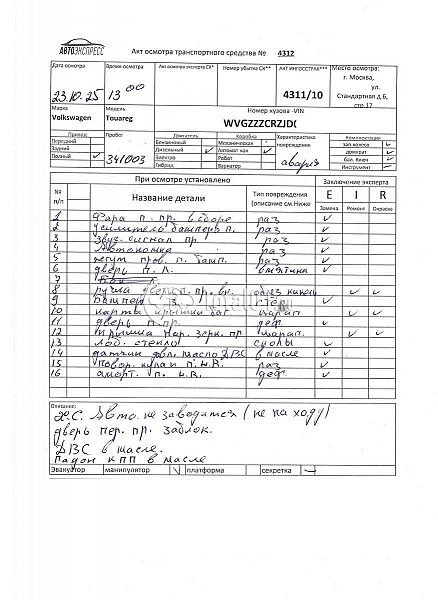 АВТОЭКСПРЕСС
Акт осмотра транспортного средства № 4312
Дата осмотра Время осмотра Акт осмотра эксперта СК* Номер убытка СК** АКТ ИНГОССТРАХ*** Место осмотра:
г. Москва,
ул.
Стандартная д.6,
стр.17
23.10.25 13 00 4311/10
Марка Модель Номер кузова -VIN
Volkswagen Touareg WVGZZZCRZJD(
Привод Пробег Двигатель Коробка Характеристика повреждения Комплектация
Передний Бензиновый Механическая зап колесо ✓
Задний Дизельный ✓ Автомат кая ✓ домкрат ✓
Полный ✓ 341003 Электро Робот авария бал. Ключ ✓
Гибрид Вариатор Инструмент ✓
При осмотре установлено Заключение эксперта
№ п/п Название детали Тип повреждения (описание см.Ниже E I R
Замена Ремонт Окраска
1 Фара п. пр. в сборе раз ✓
2 усилитель бампера п. раз ✓
3 звук. сигнал пр. раз ✓
4 раз ✓
5 жгут пров. п. бамп. раз ✓
6 дверь п. л. вмятина ✓
7
8 ручка двери п. пр. вн. ✓ ✓
9 бампер з. ✓
10 карта крышки баг царап ✓ ✓
11 дверь п пр. деф ✓
12 крышка нар. зерк. пр царап. ✓ ✓
13 лоб. стекло сколы ✓
14 датчик двл. масло ДВС в масле ✓
15 раз ✓
16 аморт. п. деф ✓
Описание:
Х.С. Авто. не заводится (не на ходу)
дверь пер. пр. заблок.
ДВС в масле.
КПП в масле
Эвакуатор манипулятор ✓ платформа секретка ✓